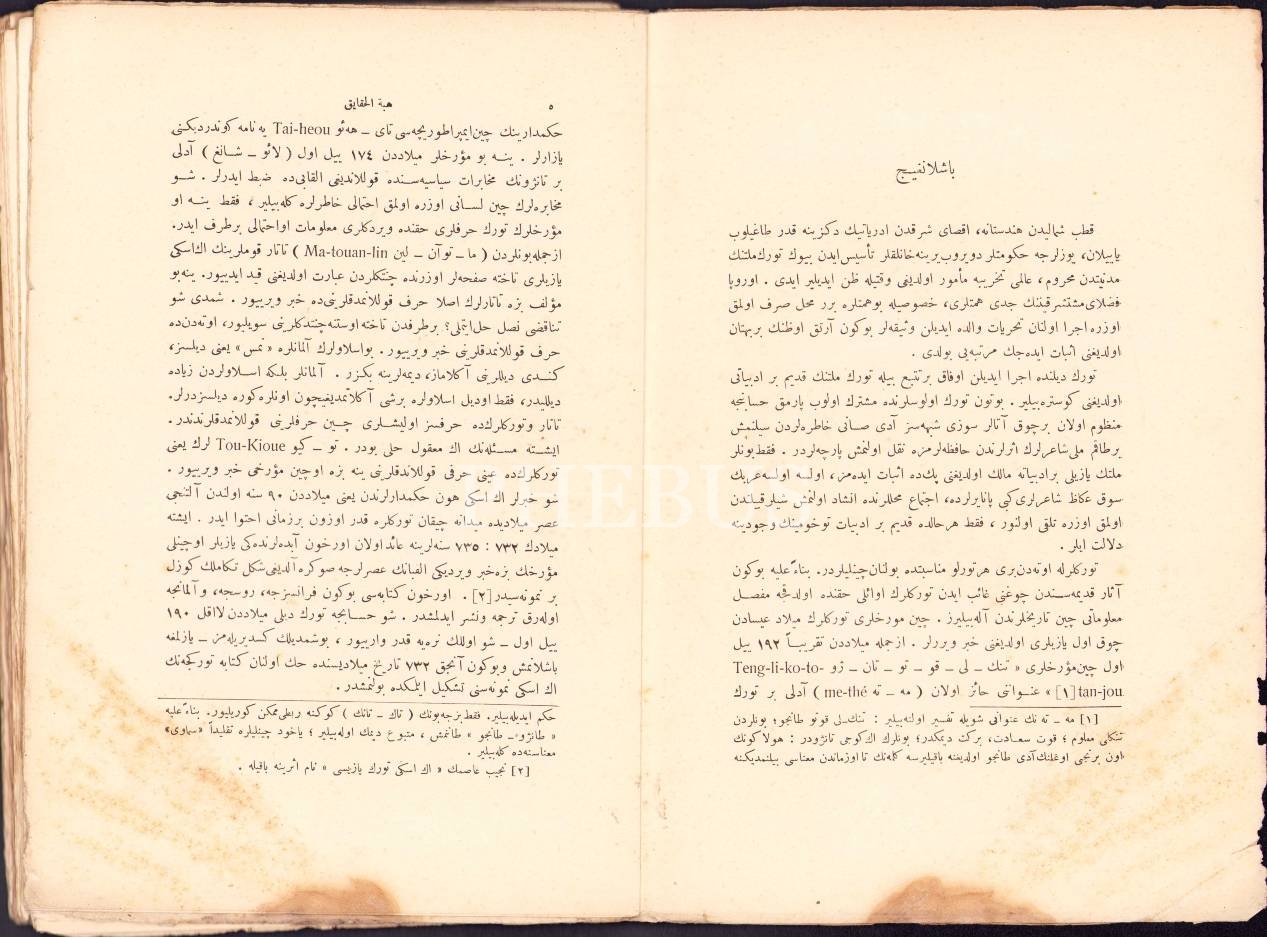 باشلانقیج
قطب شمالیدن هندستانه، اقصای شرقدن ادریاتیك دكزینه قدر طاغیلوب
یاییلان، یوزلرجه حكومتلر دویروب یرینه خانلقلر تأسیس ایدن بیوك تورك ملتنك
مدنیتدن محروم، عالمی تخریبه مأمور اولدیغی وقتیله ظن ایدیلیر ایدی . اوروپا
فضلای مستشرقیننك جدی همتلری، خصوصیله بو همتلره برر محل صرف اولمق
اوزره اجرا اولنان تحریات والده ایدیلن وثیقه‌لر بوكون آرتق اوظنك بر بهتان
اولدیغنی اثبات ایده‌جك مرتبه‌یی بولدی .
تورك دیلنده اجرا ایدیلن اوفاق بر تتبع بیله تورك ملتنك قدیم بر ادبیاتی
اولدیغنی كوستره‌بیلیر . بوتون تورك اولوسلرنده مشترك اولوب پارمق حسابنجه
منظوم اولان برچوق آتالر سوزی شبهه‌سز آدی صانی خاطره‌لردن سیلنمش
برطاقم ملی شاعرلرك اثرلرندن حافظه‌لرمزه نقل اولنمش پارچه‌لردر . فقط بونلر
ملتك یازیلی بر ادبیاته مالك اولدیغنی پك ده اثبات ایده‌مز، اولسه اولسه عربك
سوق عكاظ شاعرلری كبی پانایرلرده، اجتماع محللرنده انشاد اولنمش شیلر قبیلندن
اولمق اوزره تلقی اولنور ، فقط هرحالده قدیم بر ادبیات توخومینك وجودینه
دلالت ایلر .
توركلرله اوته‌دن بری هر تورلو مناسبتده بولنان چینلیلردر. بناءً علیه بوكون
آثار قدیمه‌سندن چوغنی غائب ایدن توركلرك اوائلی حقنده اولدقجه مفصل
معلوماتی چین تاریخلرندن آله‌بیلیرز . چین مورخلری توركلرك میلاد عیسادن
چوق اول یازیلری اولدیغنی خبر ویررلر . ازجمله میلاددن تقریباً ١٩٢ ییل
اول چین مؤرخلری « تنك ـ لی ـ قو ـ تو ـ تان ـ ژو Teng-li-ko-to-
tan-jou [١] » عنواننی حائز اولان ( مه ـ ته me-thé ) آدلی بر تورك
[١] مه ـ ته نك عنوانی شویله تفسیر اولنه‌بیلیر : تنك‌لی قوتو طانجو؛ بونلردن
تنكلی معلوم ؛ قوت سعادت، بركت دیمكدر؛ بونلرك اك كوجی تانژودر : هولاكونك
اون برنجی اوغلنك آدی طانجو اولدیغنه باقیلیرسه كله‌نك تا اوزماندن معناسی بیلنمدیكنه
٥
هبة الحقایق
حكمدارینك چین ایمپراطوریچه‌سی تای ـ هه‌ئو Tai-heou یه نامه كوندردیكنی
یازارلر . ینه بو مؤرخلر میلاددن ١٧٤ ییل اول ( لائو ـ شانغ ) آدلی
بر تانژونك مخابرات سیاسیه‌سنده قوللاندیغی القابی‌ده ضبط ایدرلر . شو
مخابره‌لرك چین لسانی اوزره اولمق احتمالی خاطرلره كله‌بیلیر ، فقط ینه او
مؤرخلرك تورك حرفلری حقنده ویردكلری معلومات اواحتمالی برطرف ایدر.
ازجمله بونلردن ( ما ـ توآن ـ لین Ma-touan-lin ) تاتار قوملرینك اك اسكی
یازیلری تاخته صفحه‌لر اوزرنده چنتكلردن عبارت اولدیغنی قید ایدییور. ینه بو
مؤلف بزه تاتارلرك اصلا حرف قوللانمدقلرینی‌ده خبر ویرییور . شمدی شو
تناقضی نصل حل ایتملی؟ برطرفدن تاخته اوستنه چنتدكلرینی سویلیور، اوته‌دن‌ده
حرف قوللانمدقلرینی خبر ویرییور . بو اسلاولرك آلمانلره « نمس » یعنی دیلسز،
كندی دیللرینی آكلاماز، دیمه‌لرینه بكزر . آلمانلر بلكه اسلاولردن زیاده
دیللیدر، فقط اودیل اسلاولره برشی آكلاتمدیغیچون اونلره كوره دیلسزدرلر.
تاتار و توركلرك‌ده حرفسز اولیشلری چین حرفلرینی قوللانمدقلرندندر.
ایشته مسئله‌نك اك معقول حلی بودر . تو ـ كیو Tou-Kioue لرك یعنی
توركلرك‌ده عینی حرفی قوللاندقلرینی ینه بزه اوچین مؤرخی خبر ویرییور .
شو خبرلر اك اسكی هون حكمدارلرندن یعنی میلاددن ٩٠ سنه اولندن آلتنجی
عصر میلادیده میدانه چیقان توركلره قدر اوزون برزمانی احتوا ایدر . ایشته
میلادك ٧٣٢ : ٧٣٥ سنه‌لرینه عائد اولان اورخون آبده‌لرنده‌كی یازیلر اوچینلی
مؤرخك بزه خبر ویردیكی الفبانك عصرلرجه صوكره آلدیغی شكل تكاملك كوزل
بر نمونه‌سیدر [٢] . اورخون كتابه‌سی بوكون فرانسزجه، روسجه، و آلمانجه
اوله‌رق ترجمه ونشر ایدلمشدر . شو حسابجه تورك دیلی میلاددن لااقل ١٩٠
ییل اول ـ شو اوللك نره‌یه قدر واریبور ، بوشمدیلك كسدیریله‌مز ـ یازلمغه
باشلانمش وبوكون آنجق ٧٣٢ تاریخ میلادیسنده حك اولنان كتابه توركجه‌نك
اك اسكی نمونه‌سنی تشكیل ایلكده بولنمشدر.
حكم ایدیله‌بیلیر. فقط بزجه بونك ( تاك ـ تانك ) كوكنه ربطی ممكن كوریلیور. بناءً علیه
« طانژو ـ طانجو » طانمش ، متبوع دیمك اوله‌بیلیر ؛ یاخود چینلیلره تقلیداً « سماوی »
معناسنه‌ده كله‌بیلیر .
[٢] نجیب عاصمك « اك اسكی تورك یازیسی » نام اثرینه باقیله .
PHEBUS